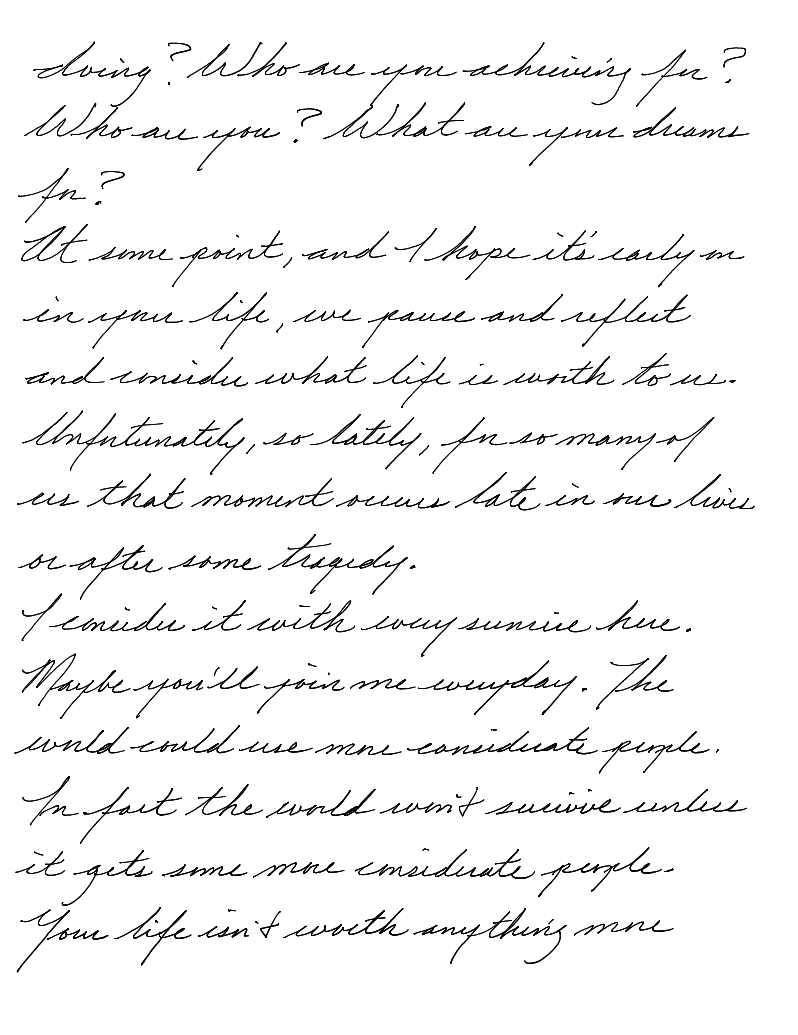 doing? Who are you achieving for?
Who are you? What are your dreams
for?
At some point, and I hope it's early on
in your life, we pause and reflect
and consider what life is worth to us.
Unfortunately, so lately, for so many of
us that moment occurs late in our lives
or after some tragedy.
I consider it with every sunrise here.
Maybe you'll join me everyday. The
world could use more considerate people.
In fact the world won't survive unless
it gets some more considerate people.
Your life isn't worth anything more